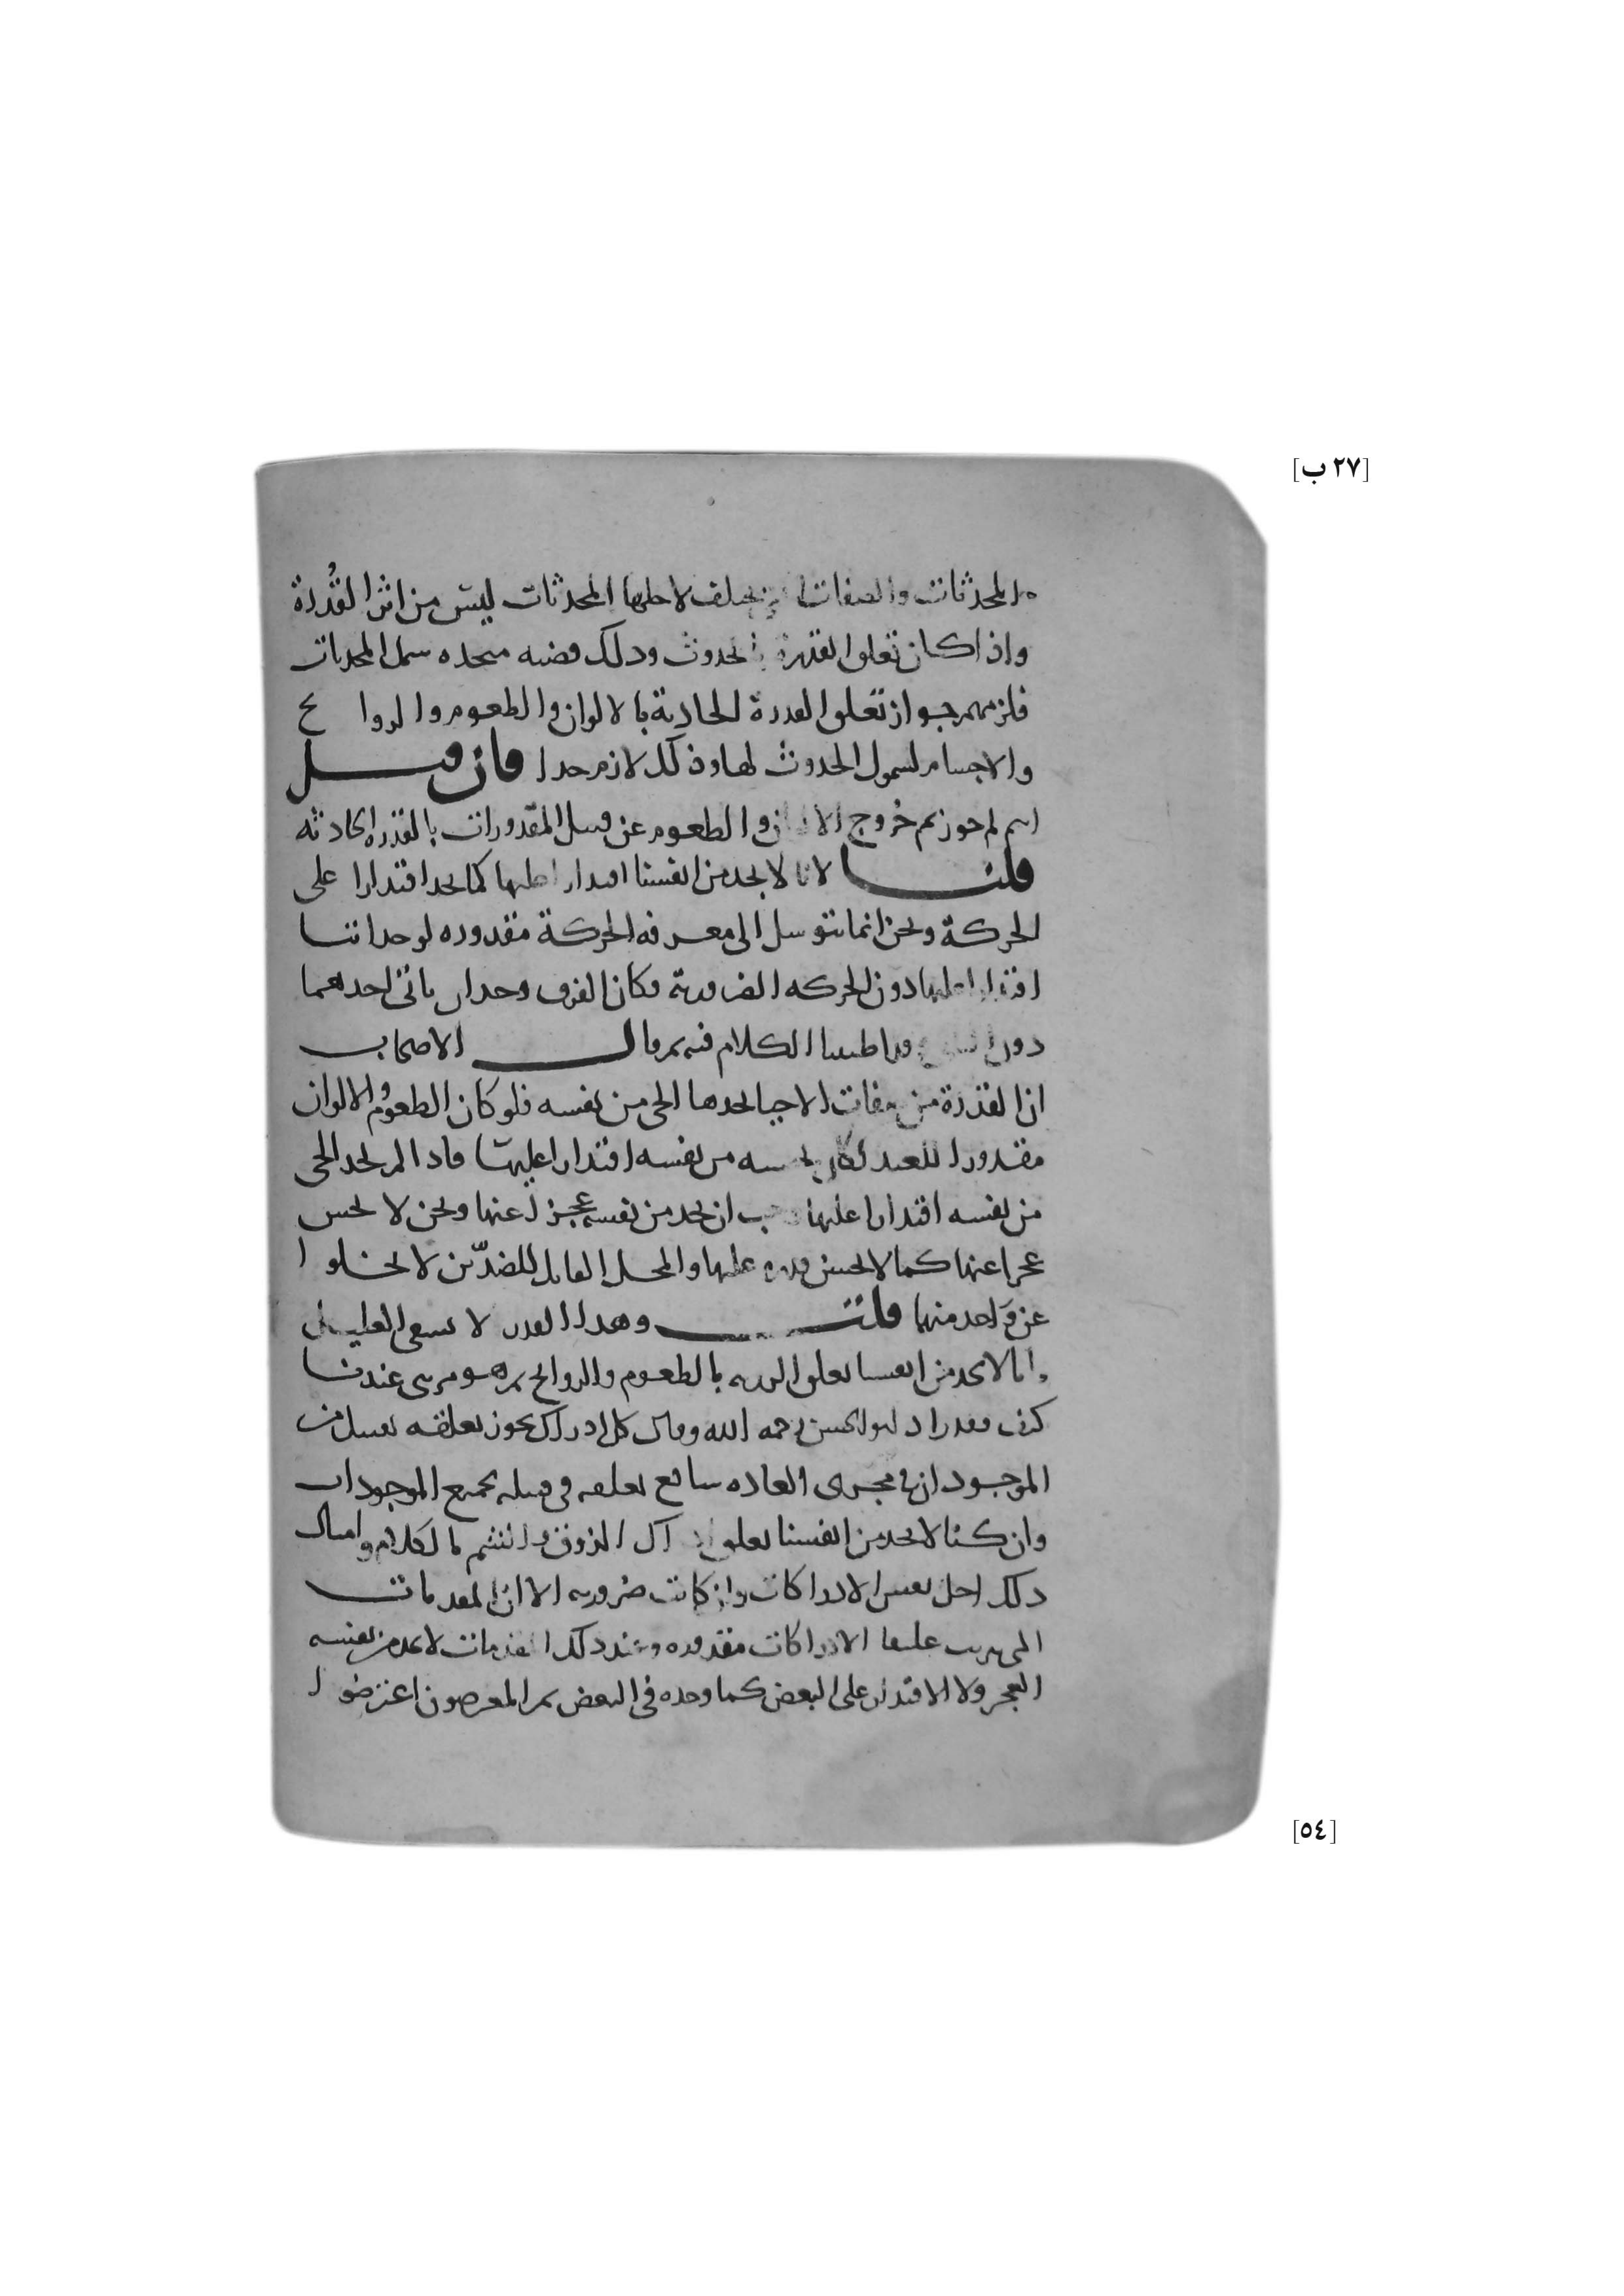 [٢٧ ب]
المحدثات والصفات التي يختلف لاجلها المحدثات ليس من اثر القُدرة
واذا كان تعلق القدرة بالحدوث وذلك قضية متحده شمل المحدثات
فلزمهم جواز تعلق القدرة الحادثة بالالوان والطعوم والروايح
والاجسام لشمول الحدوث لها وذلك لازم جدا فان قيل
انتم لم جوزتم خروج الالوان والطعوم عن قبيل المقدورات بالقدره الحادثه
قلنا لانا لا نجد من انفسنا اقتدارا عليها كما نجد اقتدارا على
الحركة ونحن انما نتوسل الى معرفه الحركة مقدوره لوجداننا
اقتدارا عليها دون الحركه الضرورية وكان الفرق وجدان تاتى احدهما
دون الكلام فيه ثم قال الاصحاب
ان القدرة من صفات الاحيا يجدها الحى من نفسه فلو كان الطعوم والالوان
مقدورا للعبد لكان يحسه من نفسه اقتدارا عليها فاذا لم يجد الحى
من نفسه اقتدارا عليها وجب ان يجد من نفسه عجزا عنها ونحن لا نحس
عجزا عنها كما لا نحس قدره عليها والمحل القابل للضدّين لا يخلوا
عن واحد منهما قلت وهذا القدر لا يشفى الغليل
وانا لا نجد من انفسنا تعلق الرويه بالطعوم والروايح ثم هو مرىى عندنا
كيف وقد زاد ابو الحسن رحمه الله وقال كل ادراك يجوز تعلقه بقبيل من
الموجودات فى مجرى العاده سايغ تعلقه فى قبيله بجميع الموجودات
وان كنا لا نجد من انفسنا تعلق ادراك الذوق والشم بالكلام وامثال
ذلك اجل نفس الادراكات وان كانت ضرورية الا ان المقدمات
التى يترتب عليها الادراكات مقدوره وعند ذلك المقدمات لا نجد من نفسه
العجز ولا الاقتدار على البعض كما وجده فى البعض ثم المعترضون اعترضوا
[٥٤]